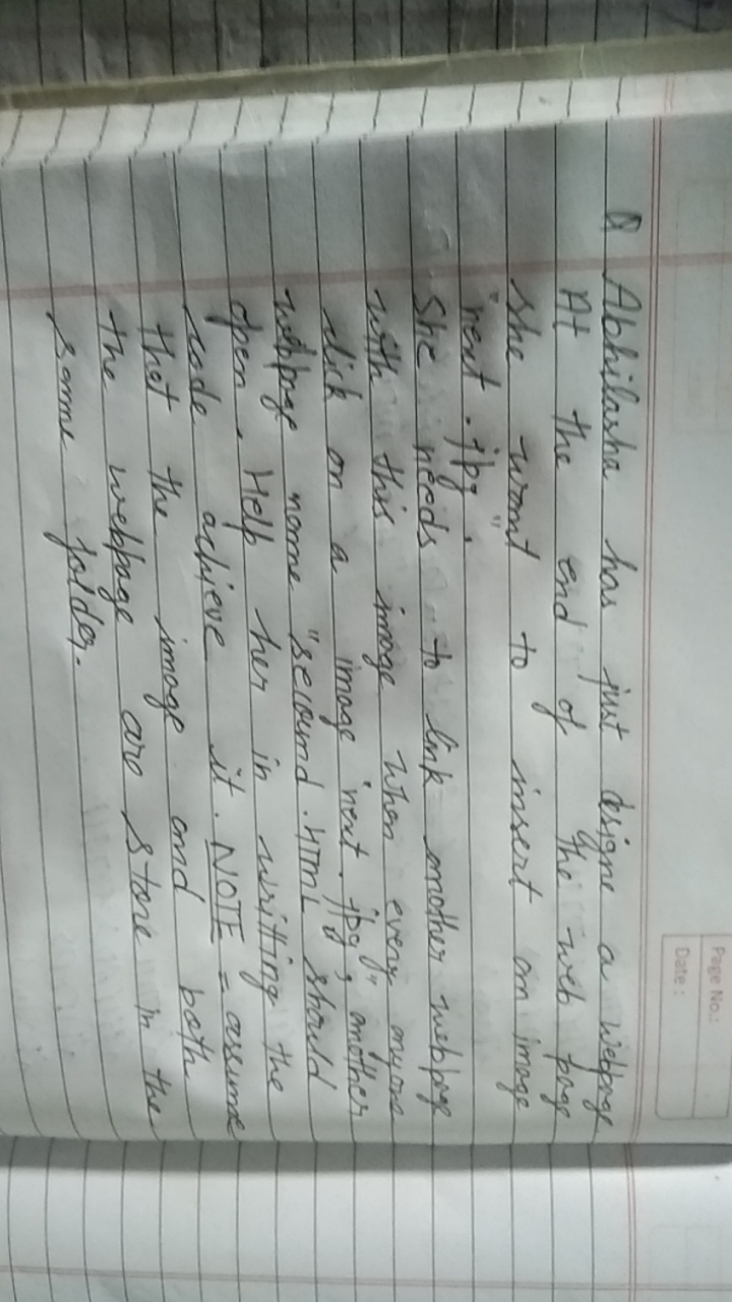 Page No.:
Date:
Q Abhilasha has just designe a webpage
At the end of the web page
she want to insert an image
"next.jpg"
She needs to link another webpage
with this image when every anyone
click on a image next.jpg", another
webpage name "secound.HTML should
open. Help her in writting the
code achieve it. NOTE = assume
that the image and both
the webpage are store in the
same folder.